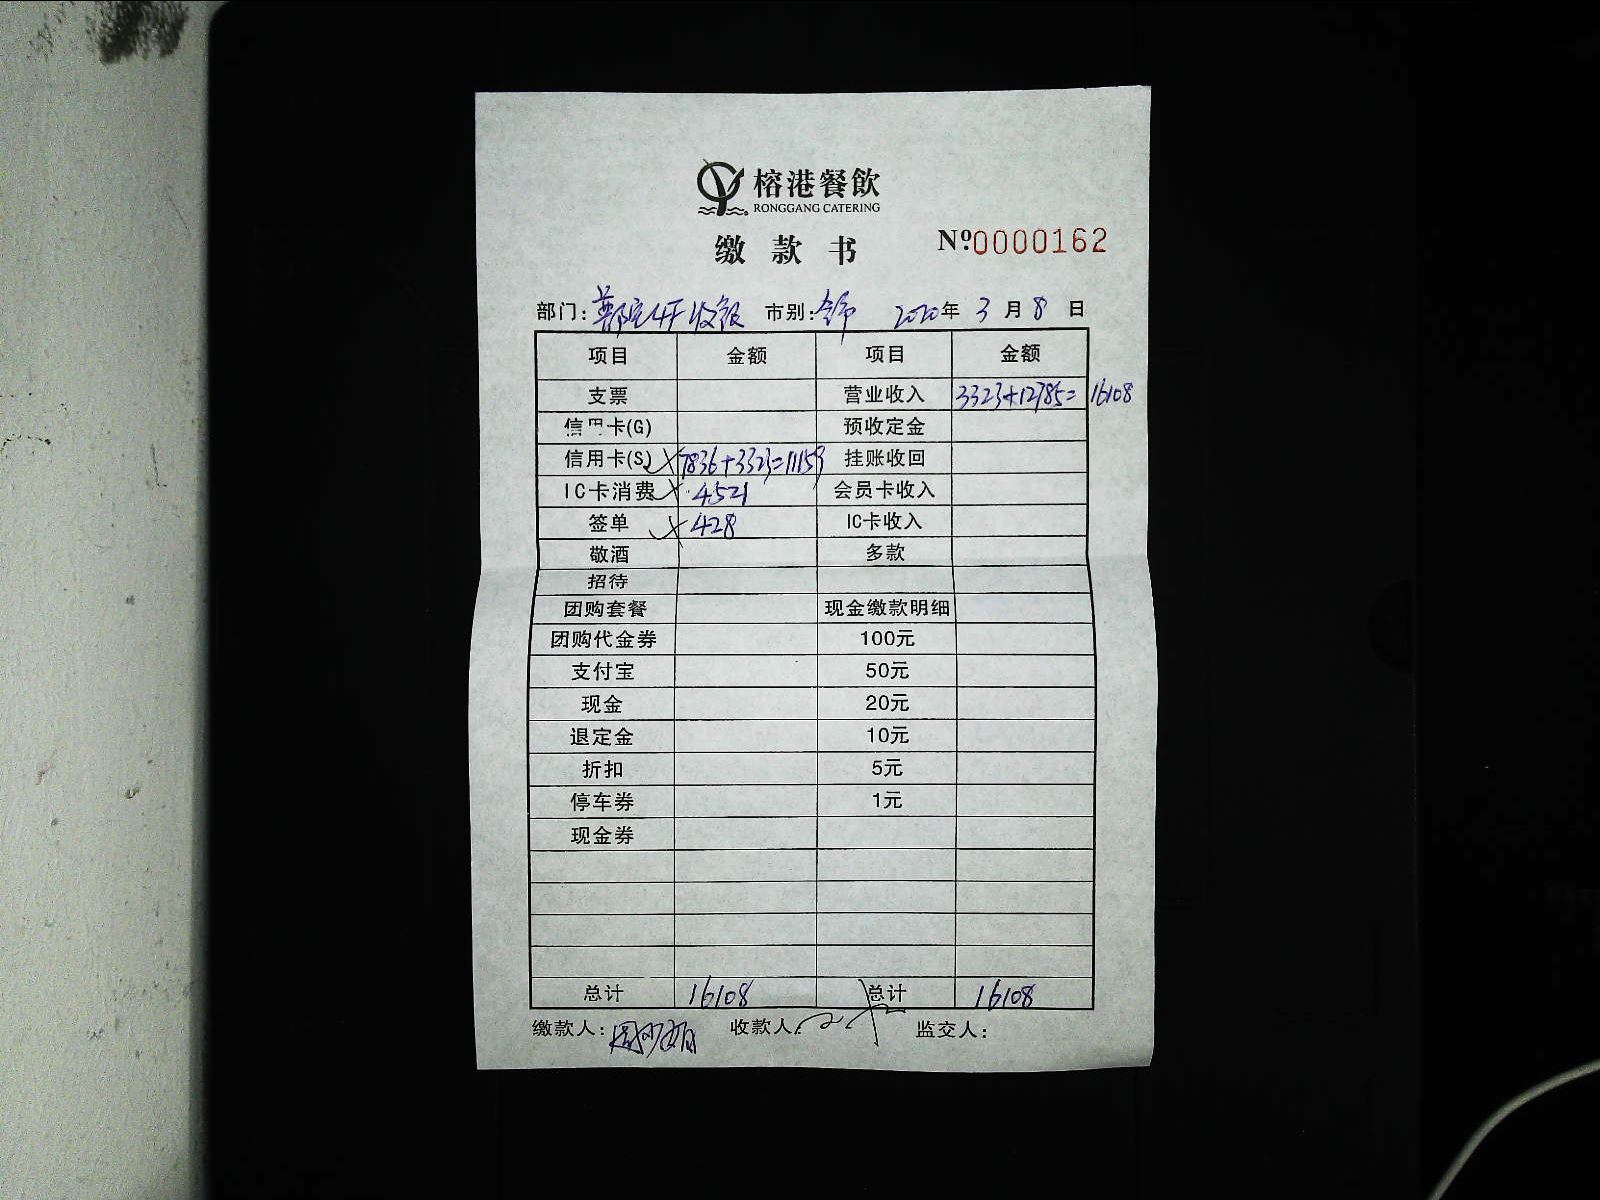 榕港餐飲
RONGGANG CATERING
缴款书 Nº0000162
部门: 收银 市别: 2020年3月8日
项目 金额 项目 金额
支票 营业收入 3323+12785= 16108
信用卡(G) 预收定金
信用卡(S) 7836+3323=11159 挂账收回
IC卡消费 4521 会员卡收入
签单 428 IC卡收入
敬酒 多款
招待
团购套餐 现金缴款明细
团购代金券 100元
支付宝 50元
现金 20元
退定金 10元
折扣 5元
停车券 1元
现金券
总计 16108 总计 16108
缴款人: 收款人: 监交人: